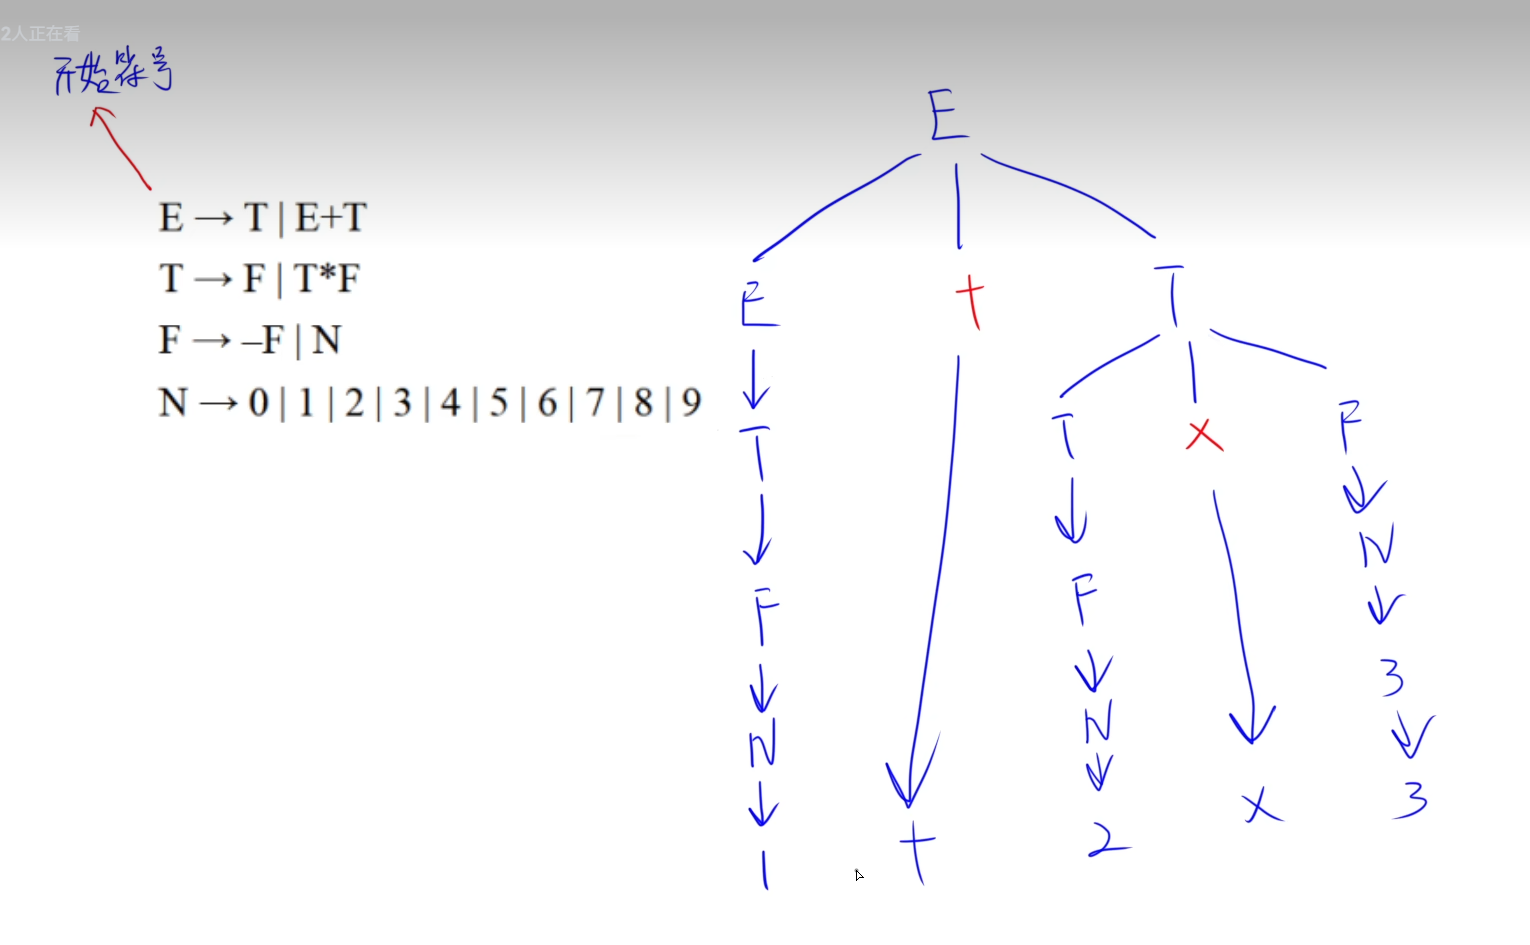 2人正在看
开始符号
E → T | E+T
T → F | T*F
F → –F | N
N → 0 | 1 | 2 | 3 | 4 | 5 | 6 | 7 | 8 | 9
E
E + T
T × F
T F N
F N 3
N 2 × 3
1 +